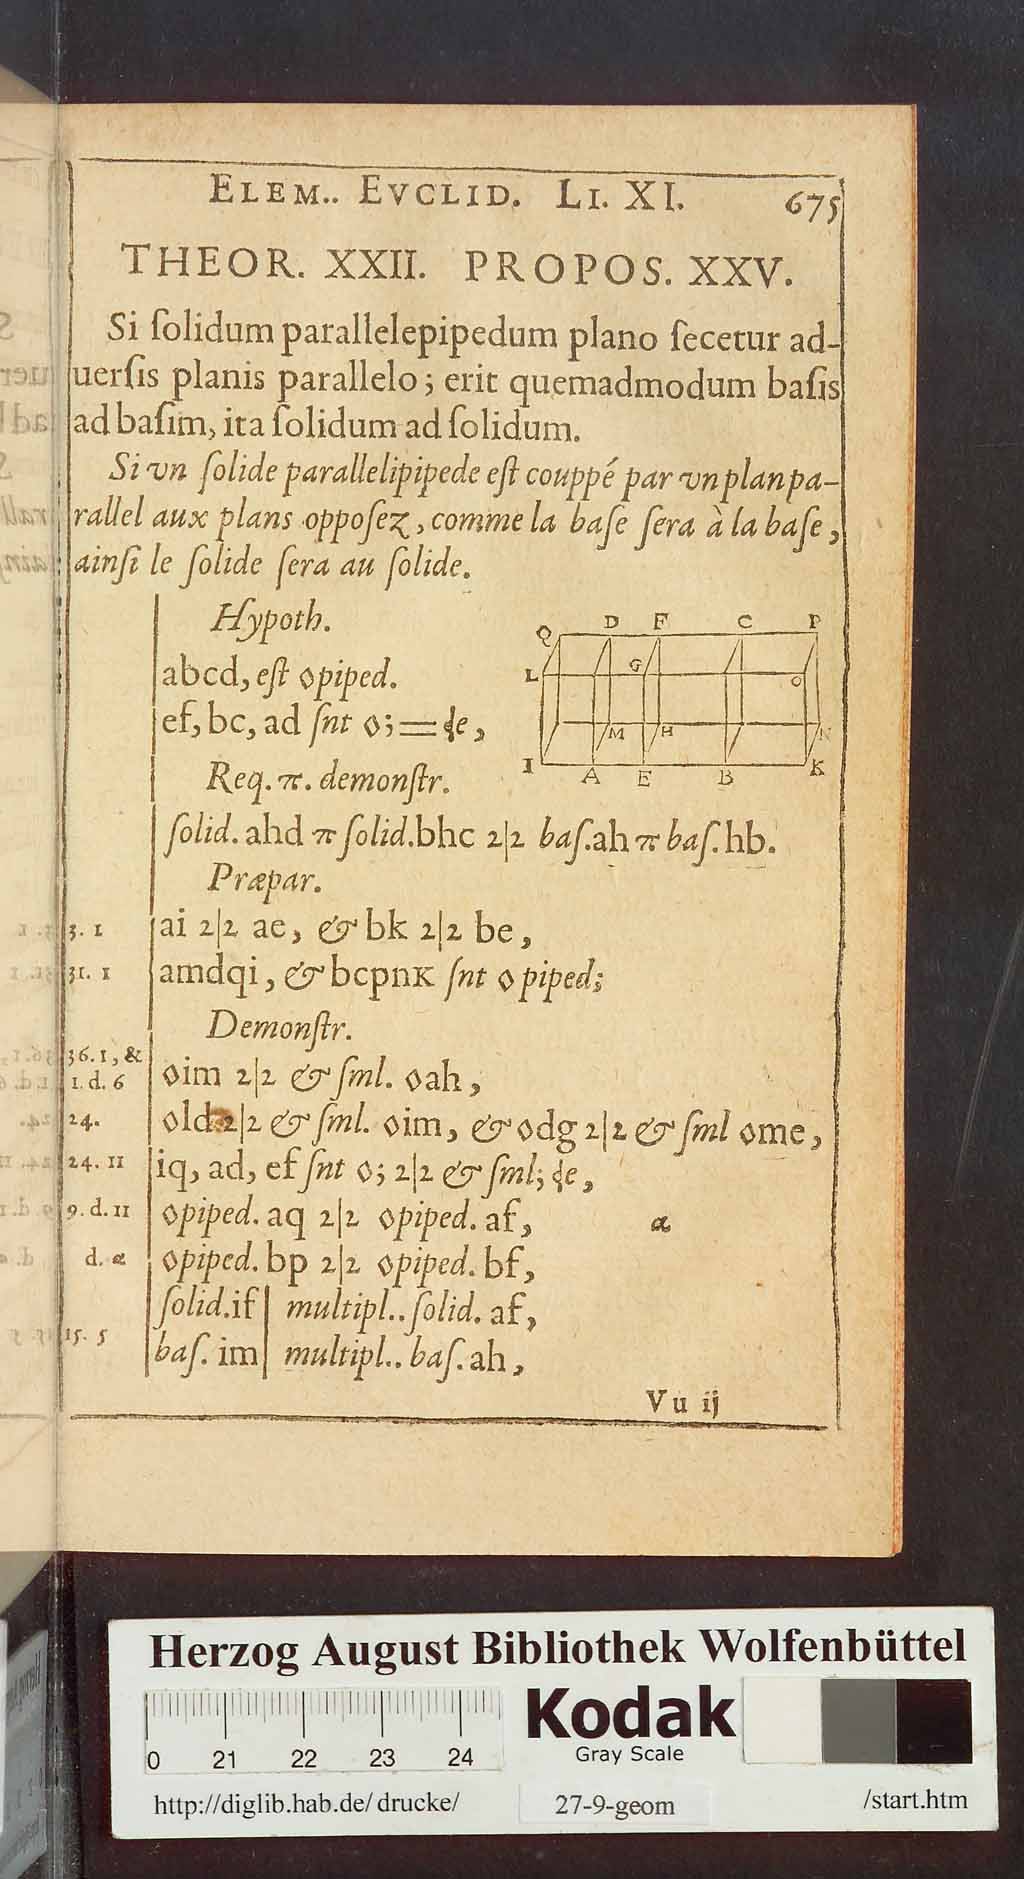 ELEM.. EVCLID. LI. XI. 675
THEOR. XXII. PROPOS. XXV.
Si ſolidum parallelepipedum plano ſecetur ad-
uerſis planis parallelo; erit quemadmodum baſis
ad baſim, ita ſolidum ad ſolidum.
Si vn ſolide parallelipipede eſt couppé par vn plan pa-
rallel aux plans oppoſez, comme la baſe ſera à la baſe,
ainſi le ſolide ſera au ſolide.
Hypoth.
Q D F C P
L G O
M H N
I A E B K
abcd, eſt ◊piped.
ef, bc, ad ſnt ◊; = ɖe,
Req. π. demonſtr.
ſolid. ahd π ſolid. bhc 2|2 baſ. ah π baſ. hb.
Præpar.
3. 1 ai 2|2 ae, & bk 2|2 be,
31. 1 amdqi, & bcpnк ſnt ◊piped;
Demonſtr.
36. 1, &
1. d. 6 ◊im 2|2 & ſml. ◊ah,
24. ◊ld 2|2 & ſml. ◊im, & ◊dg 2|2 & ſml ◊me,
24. 11 iq, ad, ef ſnt ◊; 2|2 & ſml; ɖe,
9. d. 11 ◊piped. aq 2|2 ◊piped. af, α
d. α ◊piped. bp 2|2 ◊piped. bf,
ſolid. if | multipl.. ſolid. af,
15. 5
baſ. im | multipl.. baſ. ah,
Vu ij
Herzog August Bibliothek Wolfenbüttel
0 21 22 23 24
Kodak
Gray Scale
http://diglib.hab.de/drucke/ 27-9-geom /start.htm